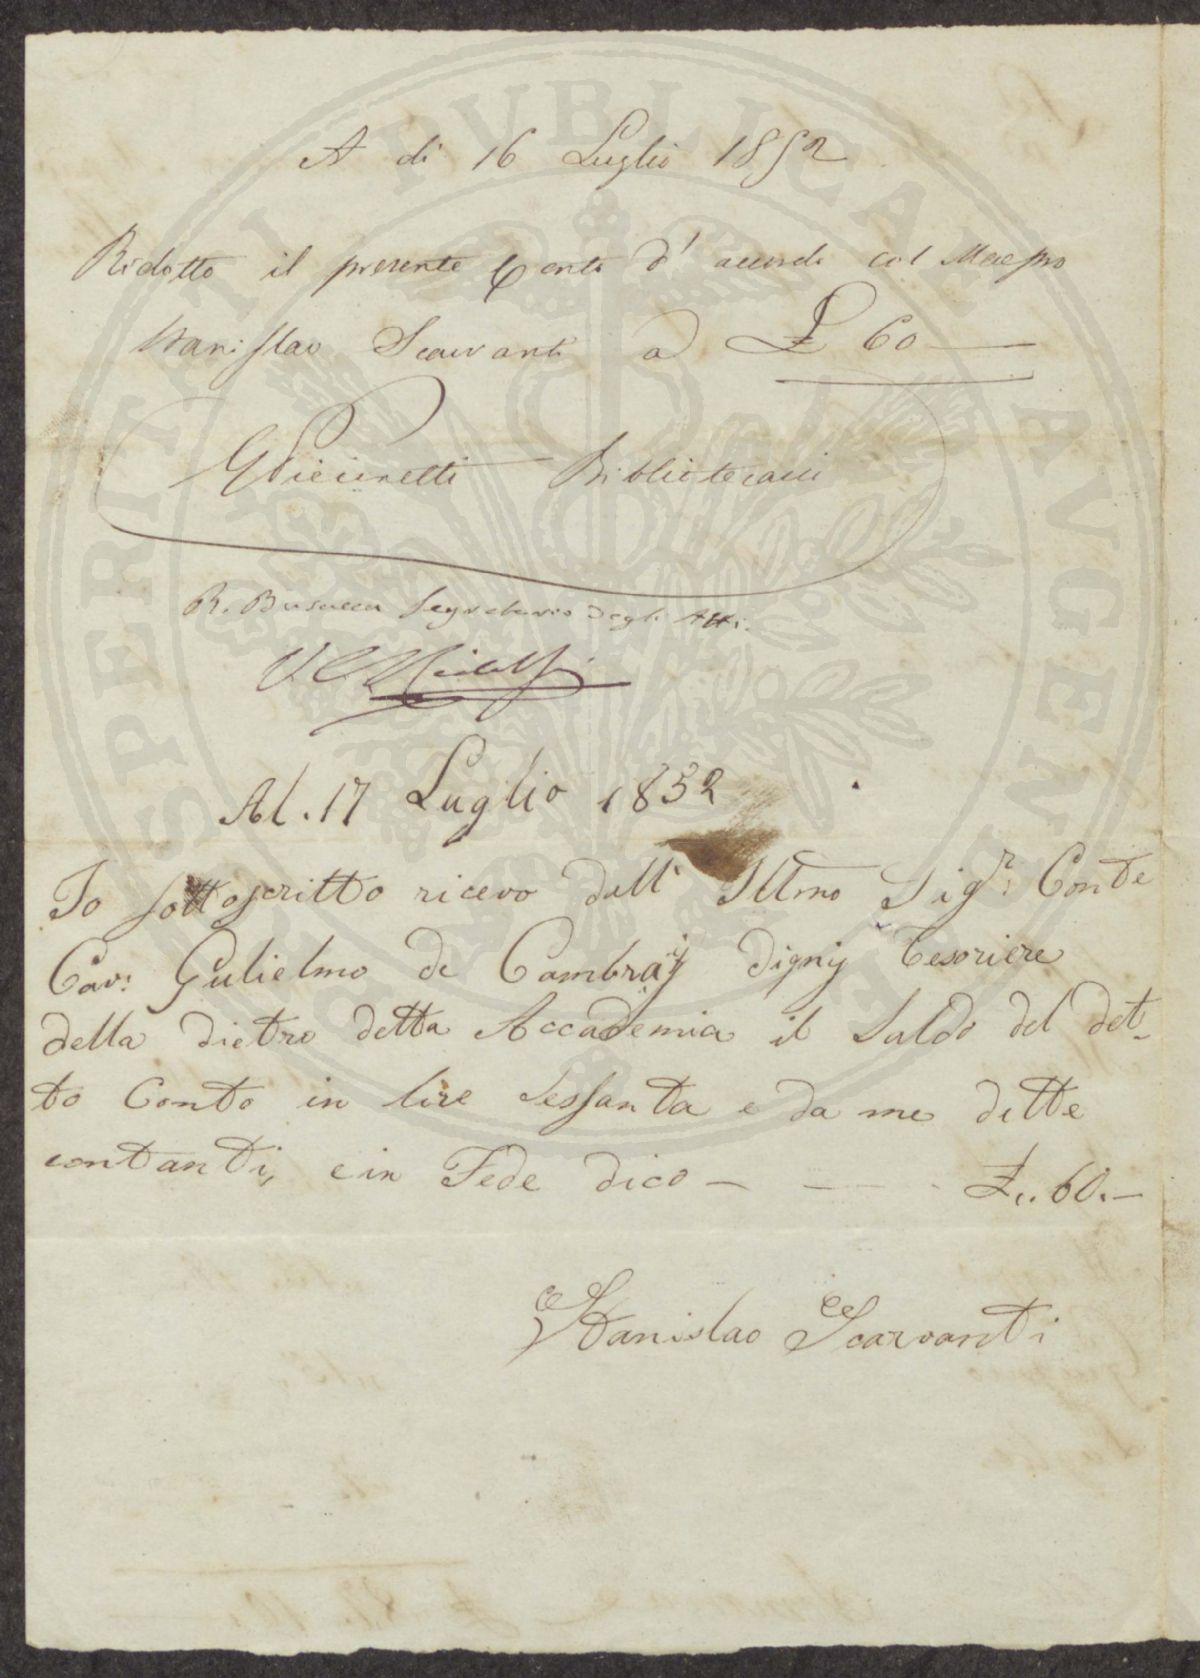 A di 16 Luglio 1852
Ridotto il presente Conto d'accordo col Maestro
Stanislao Scarvanti a £ 60
Bibliotecari
R. Busacca Segretario degli Atti.
Al. 17 Luglio 1852
Io sottoscritto ricevo dall' Illmo Sigr: Conte
Cav: Gulielmo de Cambray Digny Tesoriere
della dietro detta Accademia il Saldo del det-
to Conto in lire Sessanta e da me dette
contanti, e in Fede dico — £.. 60.—
Stanislao Scarvanti
PROSPERITATI PUBLICAE AUGENDAE